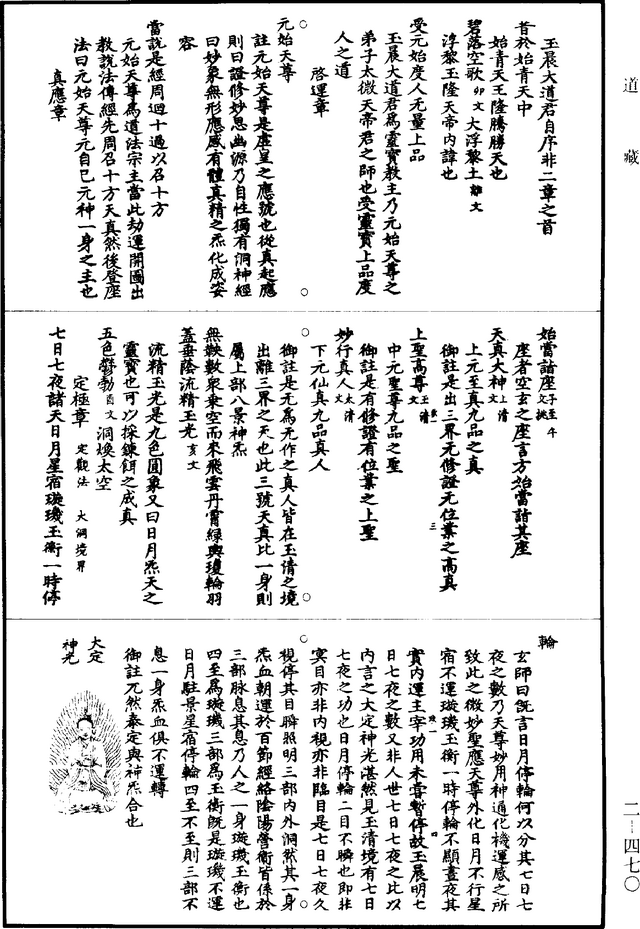 道藏
玉晨大道君自序非二章之首
昔於始青天中
始青天王隆騰勝天也
碧落空歌卯文大浮黎土離文
浮黎玉隆天帝内諱也
受元始度人无量上品
玉晨大道君爲靈寶教主乃元始天尊之
弟子太微天帝君之師也受靈寶上品度
人之道
啓運章
元始天尊
註元始天尊是虛皇之應號也從真起應
則曰證修妙思幽源乃自性獨有洞神經
曰妙象無形應感有體真精之炁化成姿
容
當說是經周迴十過以召十方
元始天尊爲道法宗主當此劫運開圖出
教說法傳經先周召十方天真然後登座
法曰元始天尊元自己元神一身之主也
真應章
始當詣座
座者空玄之座言方始當詣其座
天真大神上清文
上元至真九品之真
御註是出三界无修證元位業之高真
上聖高尊玉清文
中元聖尊九品之聖
御註是有修證有位業之上聖
妙行真人太清文
下元仙真九品真人
御註是无爲无作之真人皆在玉清之境
出離三界之天也此三號天真比一身則
屬上部八景神炁
無鞅數衆乘空而來飛雲丹霄緑輿瓊輪羽
蓋垂蔭流精玉光亥文
流精玉光是九色圓象又曰日月炁天之
靈寶也可以採鍊餌之成真
五色鬱勃酉文洞煥太空
定極章定觀法大洞境界
七日七夜諸天日月星宿璇璣玉衡一時停
輪
玄師曰既言日月停輪何以分其七日七
夜之數乃天尊妙用神通化機運感之所
致此之微妙聖應天尊外化日月不行星
宿不運璇璣玉衡一時停輪不顯晝夜其
實内運主宰功用未嘗暫停故玉晨明七
日七夜之數又非人世七日七夜之比以
内言之大定神光湛然見玉清境有七日
七夜之功也日月停輪二目不瞬也即非
㝠目亦非内視亦非臨目是七日七夜久
視停其目瞬照明三部内外洞然其一身
炁血朝運於百節經絡陰陽營衛皆係於
三部脉息其息乃人之一身璇璣玉衡也
四至爲璇璣三部爲玉衡既是璇璣不運
日月駐景星宿停輪四至不至則三部不
息一身炁血俱不運轉
御註兀然泰定與神炁合也
大定
神光
二-四七〇